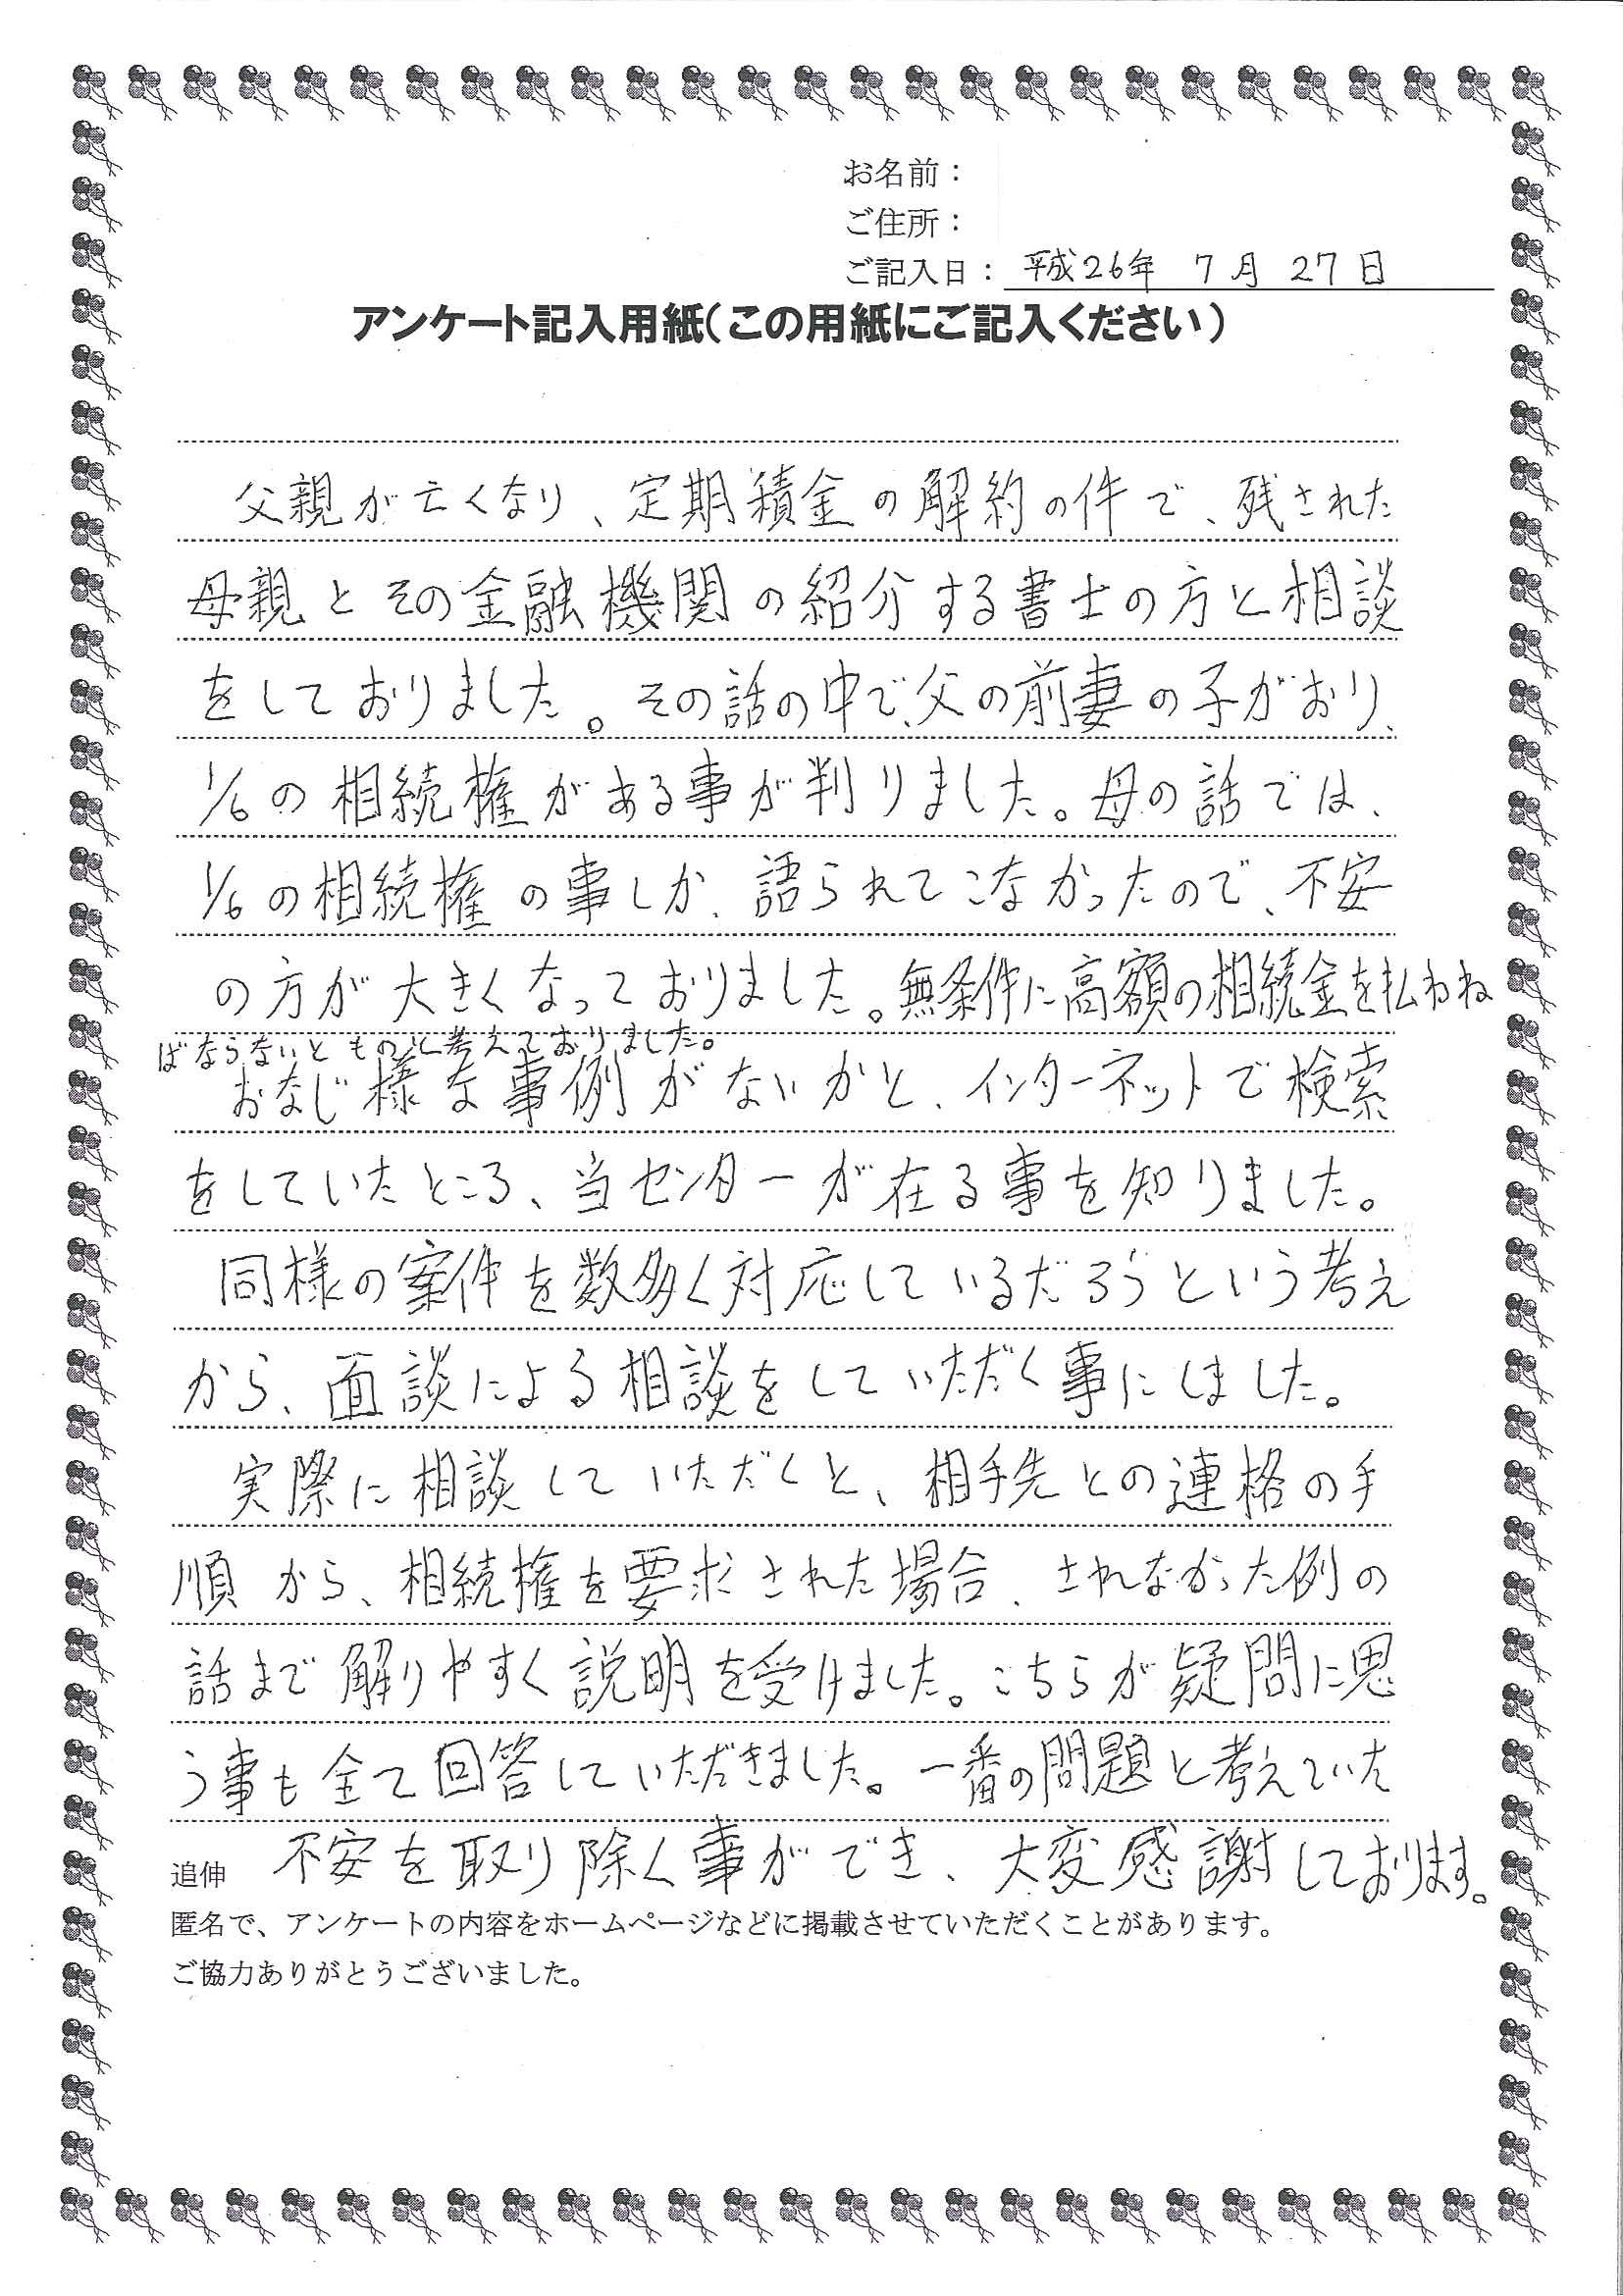 お名前：
ご住所：
ご記入日： 平成26年 7月 27日
アンケート記入用紙（この用紙にご記入ください）
父親が亡くなり、定期積金の解約の件で、残された
母親とその金融機関の紹介する書士の方と相談
をしておりました。その話の中で、父の前妻の子がおり、
1/6の相続権がある事が判りました。母の話では、
1/6の相続権の事しか、語られてこなかったので、不安
の方が大きくなっておりました。無条件に高額の相続金を払わね
ばならないとものと考えておりました。
おなじ様な事例がないかと、インターネットで検索
をしていたところ、当センターが在る事を知りました。
同様の案件を数多く対応しているだろうという考え
から、面談による相談をしていただく事にしました。
実際に相談していただくと、相手先との連格の手
順から、相続権を要求された場合、されなかった例の
話まで解りやすく説明を受けました。こちらが疑問に思
う事も全て回答していただきました。一番の問題と考えていた
不安を取り除く事ができ、大変感謝しております。
追伸
匿名で、アンケートの内容をホームページなどに掲載させていただくことがあります。
ご協力ありがとうございました。